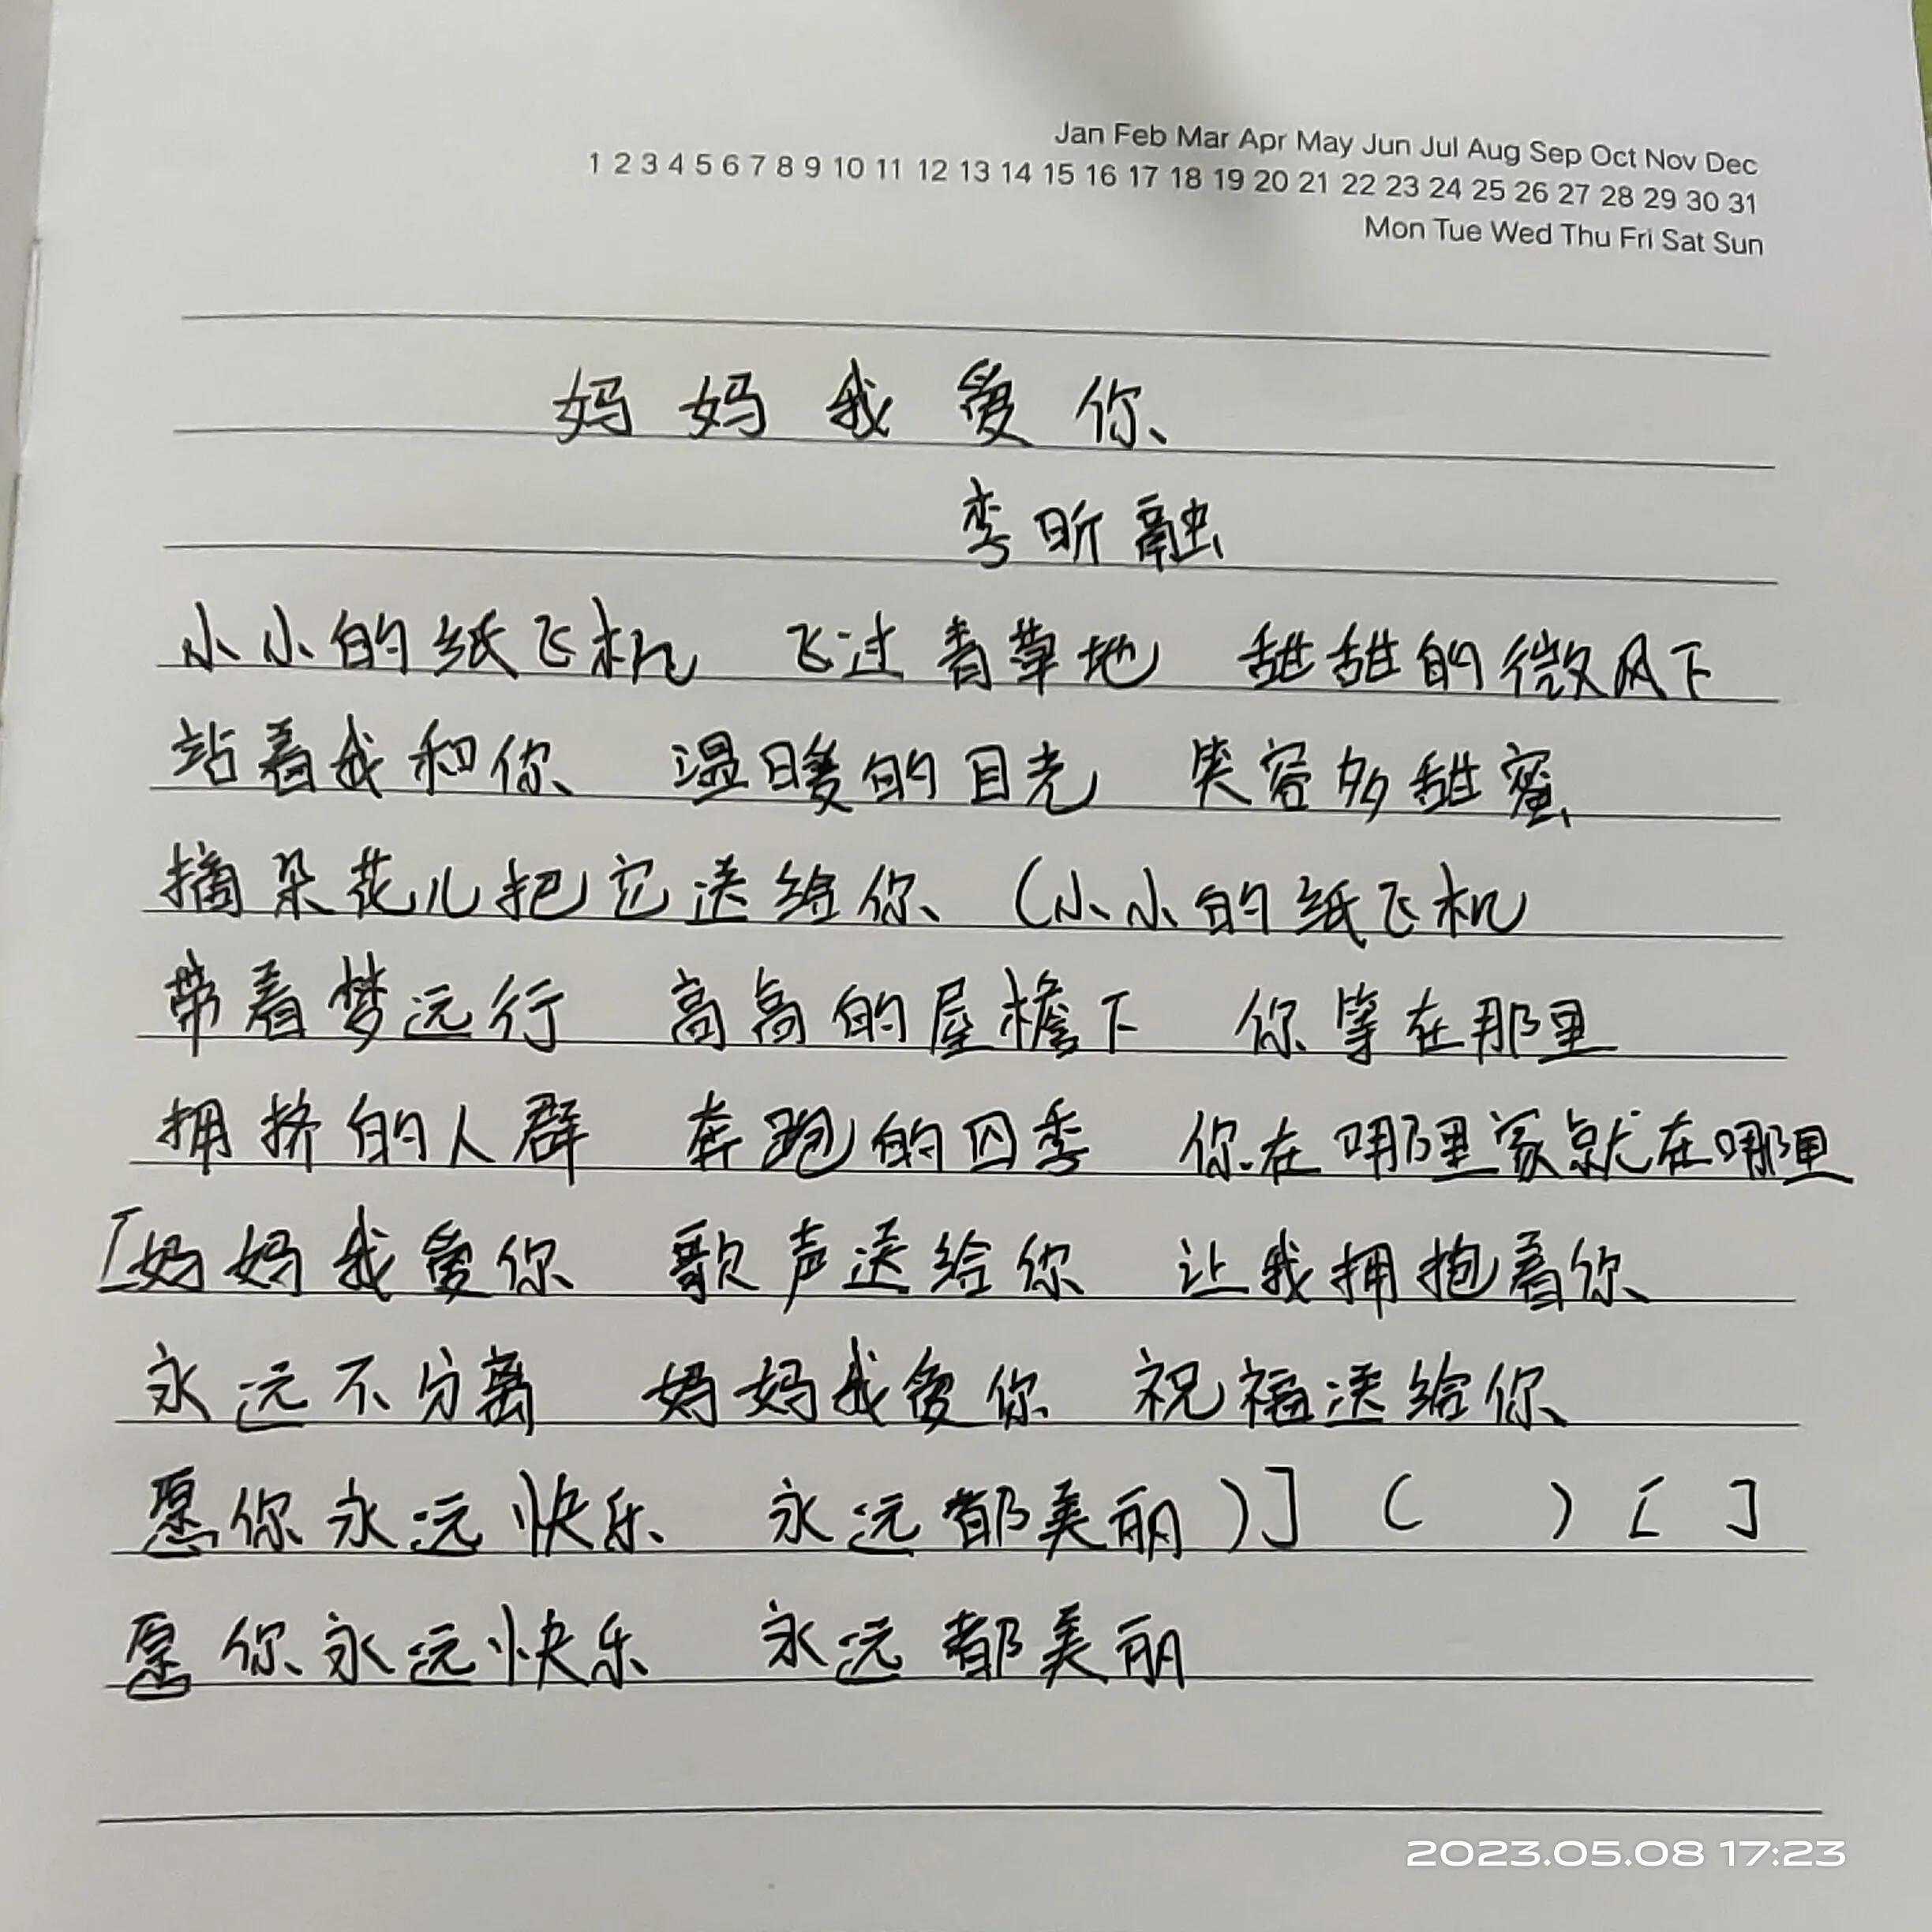 Jan Feb Mar Apr May Jun Jul Aug Sep Oct Nov Dec
1 2 3 4 5 6 7 8 9 10 11 12 13 14 15 16 17 18 19 20 21 22 23 24 25 26 27 28 29 30 31
Mon Tue Wed Thu Fri Sat Sun
妈妈我爱你
李昕融
小小的纸飞机 飞过青草地 甜甜的微风下
站着我和你 温暖的目光 笑容多甜蜜
摘朵花儿把它送给你 (小小的纸飞机
带着梦远行 高高的屋檐下 你等在那里
拥挤的人群 奔跑的四季 你在哪里家就在哪里
[妈妈我爱你 歌声送给你 让我拥抱着你
永远不分离 妈妈我爱你 祝福送给你
愿你永远快乐 永远都美丽)] ( ) [ ]
愿你永远快乐 永远都美丽
2023.05.08 17:23